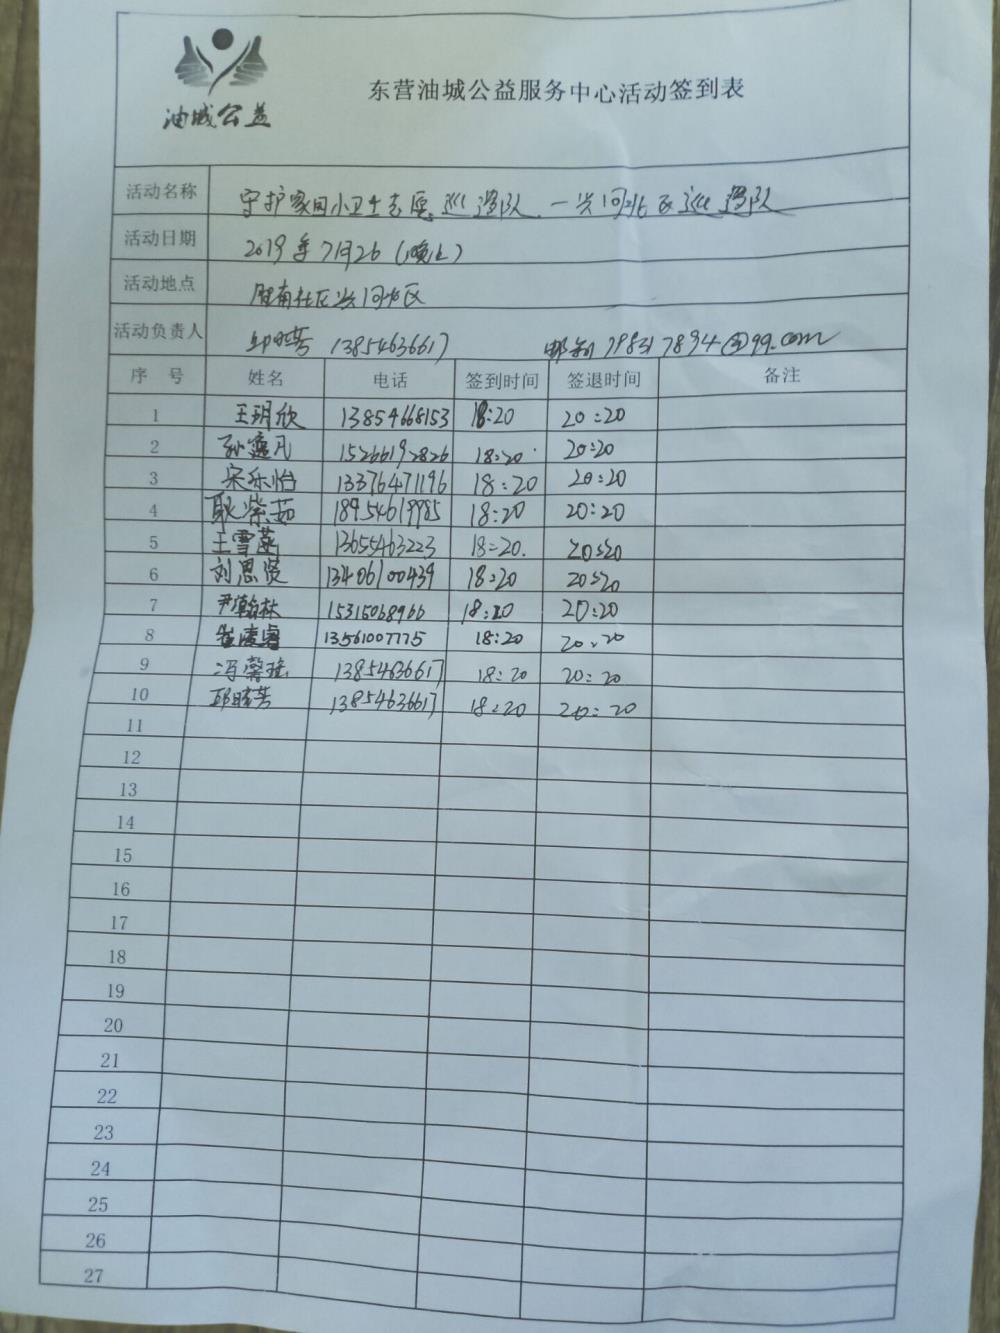 油城公益
东营油城公益服务中心活动签到表
活动名称 守护家园小卫士志愿巡逻队 一兴河北区巡逻队
活动日期 2019年7月26(晚上)
活动地点 胜南社区兴河北区
活动负责人 邱晓芳 13854636617 邮箱 798317894@qq.com
序 号 姓名 电话 签到时间 签退时间 备注
1 王玥欣 13854668153 18:20 20:20
2 孙凡 15266192826 18:20 20:20
3 宋乐怡 13376471196 18:20 20:20
4 耿紫茹 18954619985 18:20 20:20
5 王雪菡 13655463223 18:20 20:20
6 刘思贤 13406100439 18:20 20:20
7 尹翰林 15315068966 18:20 20:20
8 崔凌睿 13561007775 18:20 20:20
9 冯馨瑶 13854636617 18:20 20:20
10 邱晓芳 13854636617 18:20 20:20
11
12
13
14
15
16
17
18
19
20
21
22
23
24
25
26
27